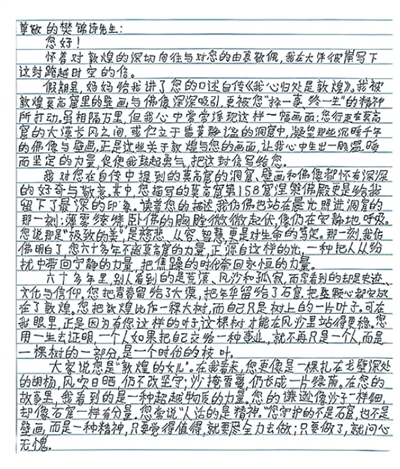 尊敬的樊锦诗先生:
您好!
怀着对敦煌的深切向往与对您的由衷敬佩,我在大洋彼岸写下
这封跨越时空的信。
假期里,妈妈给我讲了您的口述自传《我心归处是敦煌》。我被
敦煌莫高窟里的壁画与佛像深深吸引,更被您“择一事,终一生”的精神
所打动。虽相隔万里,但我心中常常浮现这样一幅画面:您行走在莫高
窟的大漠长风之间,或伫立于昏黄静谧的洞窟中,凝望那些沉睡千年
的佛像与壁画,正是这些关于敦煌与您的画面,让我心中生出一股温暖
而坚定的力量,促使我鼓起勇气,把这封信写给您。
我对您在自传中提到的莫高窟的洞窟、壁画和佛像都怀有深深
的好奇与敬意。其中,您描写的莫高窟第158窟涅槃佛殿更是给我
留下了最深的印象。读着您的描述,我仿佛也站在晨光照进洞窟的
那一刻:薄雾缭绕,卧佛的胸膛微微起伏,像仍在安静地呼吸。
您说那是“极致的美”,是慈悲、从容、智慧,更是对生命的笃定。那一刻,我仿
佛明白了,您六十多年不离莫高窟的力量,正源自这样的光,一种把人从纷
扰中带回宁静的力量,把浮躁的时代带回永恒的力量。
六十多年里,别人看到的是荒漠、风沙和孤寂,而您看到的却是史迹、
文化与信仰。您把青春留给了大漠,把年华留给了石窟,把整颗心都安放
在了敦煌。您把敦煌比作一棵大树,而自己只是树上的一片叶子。可在
我眼里,正是因为有您这样的叶子,这棵树才能在风沙里站得更稳。您
用一生去证明,一个人如果把自己交给一种事业,就不再只是一个人,而是
一棵树的一部分,是一个时份的枝叶。
大家说您是“敦煌的女儿”。在我看来,您更像是一棵扎在戈壁深处
的胡杨,风吹日晒,仍不改坚守;沙掩雪覆,仍长成一片绿荫。在您的
故事里,我看到的是一种超越物质的力量。您的谦逊像沙子一样细,
却像石窟一样有分量。您常说“人活的是精神。”您守护的不是石窟,也不是
壁画,而是一种精神,只要觉得值得,就要尽全力去做;只要做了,就问心
无愧.